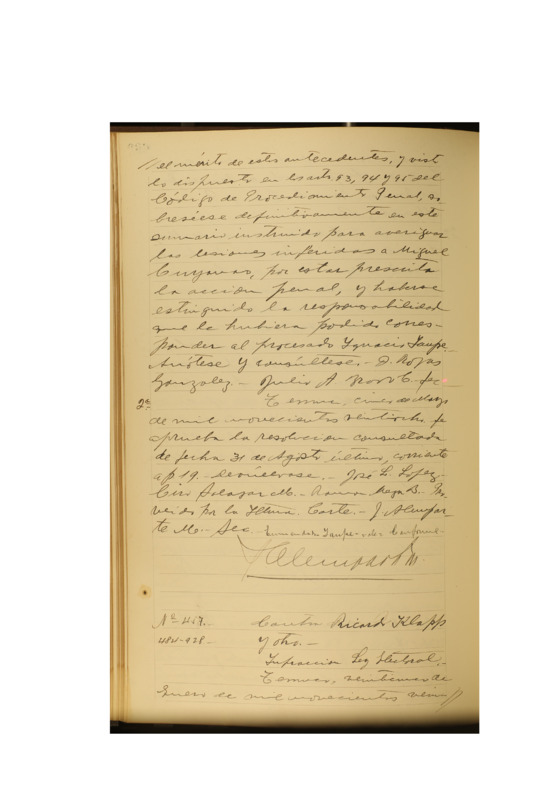 el mérito de estos antecedentes, y visto
lo dispuesto en los arts 93, 94 y 95 del
Código de Procedimiento Penal, so
bresiese definitivamente en este
sumario instruido para averiguar
las lesiones inferidas a Miguel
por estar prescrita
la acción penal, y haberse
estinguido la responsabilidad
que le hubiera podido corres-
ponder al procesado Ygnacio
Anótese y consúltese.- D. Rojas
Gonzalez.- Julio A
2ª Temuco, cinco de Marzo
de mil novecientos veintiocho. Se
aprueba la resolucion consultada
de fecha 31 de Agosto último, corriente
a f 19.- Devuélvase.- José L. Lopez.-
Ciro Salazar M.- Ramon Meza B. Pro
veido por la Iltma. Corte.- J.
te M.- Sec.
Nº 457.- Contra Ricardo Klapp
484-928 y otro.-
Infraccion Ley Electoral.-
Temuco, de
Enero de mil novecientos